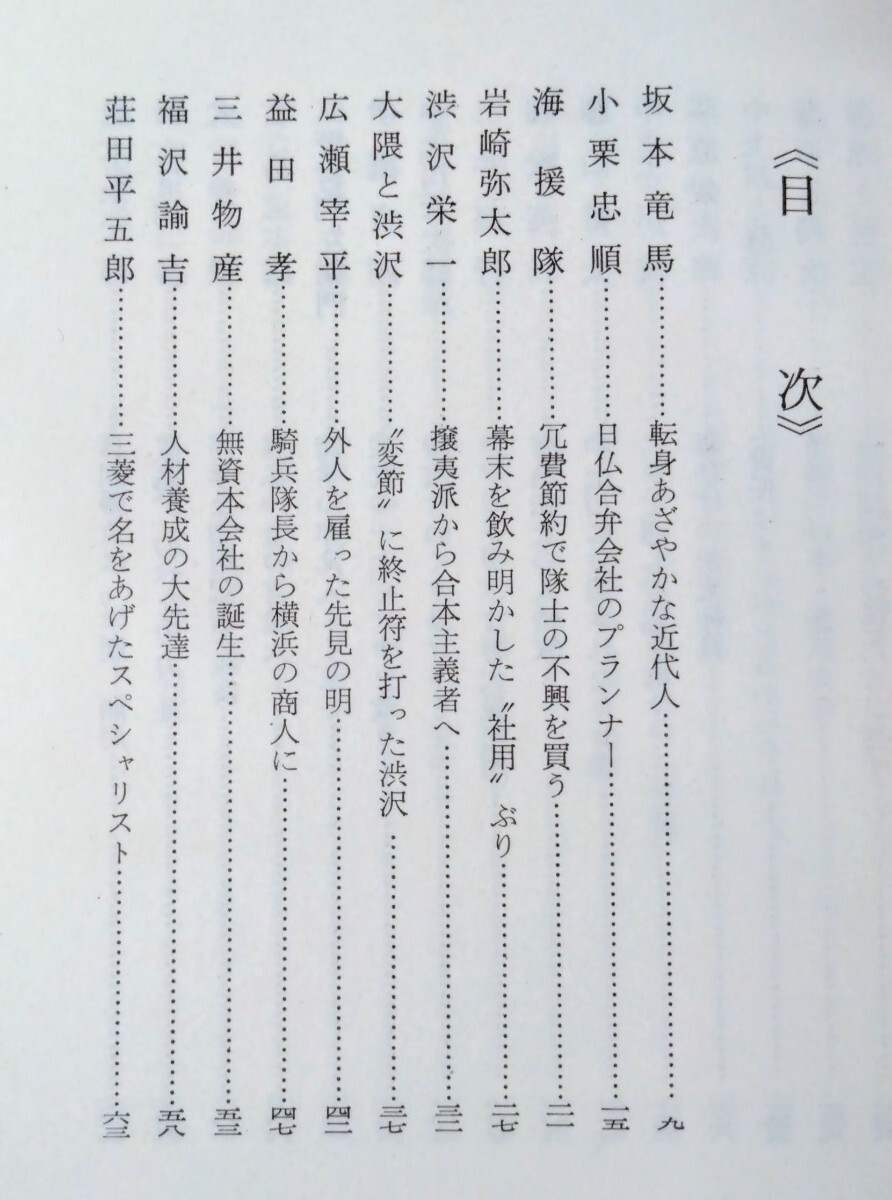 《目次》
坂本竜馬……………転身あざやかな近代人……………九
小栗忠順……………日仏合弁会社のプランナー……………一五
海援隊……………冗費節約で隊士の不興を買う……………二一
岩崎弥太郎……………幕末を飲み明かした〝社用〟ぶり……………二七
渋沢栄一……………攘夷派から合本主義者へ……………三二
大隈と渋沢……………〝変節〟に終止符を打った渋沢……………三七
広瀬宰平……………外人を雇った先見の明……………四二
益田孝……………騎兵隊長から横浜の商人に……………四七
三井物産……………無資本会社の誕生……………五三
福沢諭吉……………人材養成の大先達……………五八
荘田平五郎……………三菱で名をあげたスペシャリスト……………六三